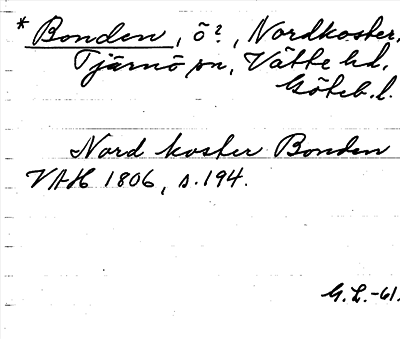 * Bonden, ö?, Nordkoster,
Tjärnö sn, Vätte hd,
Göteb. l.
Nord koster Bonden
VAH 1806, s. 194.
G.L.-61.